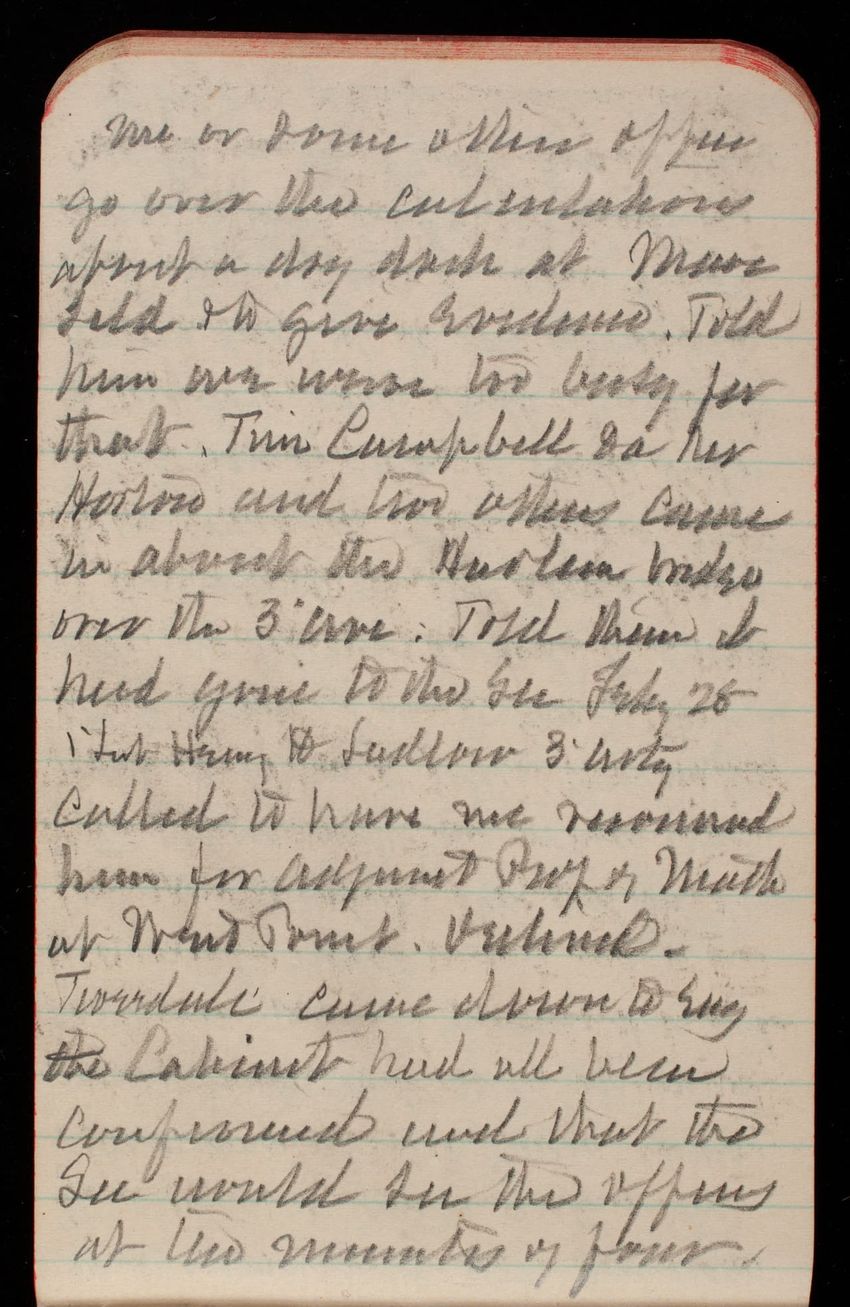 me or some other officer
go over the calculations
about a dry dock at
& to give evidence. Told
him we were too busy for
that. Tim Campbell
and two others came
in about the Harlem bridge
over the 3' ave: Told them it
had gone to the Sec Feby 28
1' Lut Henry H Ludlow 3' arty
called to have me recommend
him for adjunct Prof of Math
at West Point. Declined.
Twerdale came down to say
the Cabinet had all been
confirmed and that the
Sec would see the officers
at two minutes of four.